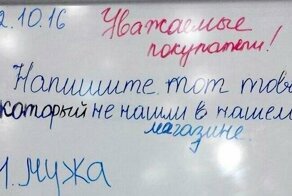 2.10.16
Уважаемые
покупатели!
Напишите тот това
который не нашли в нашем
магазине.
1. мужа